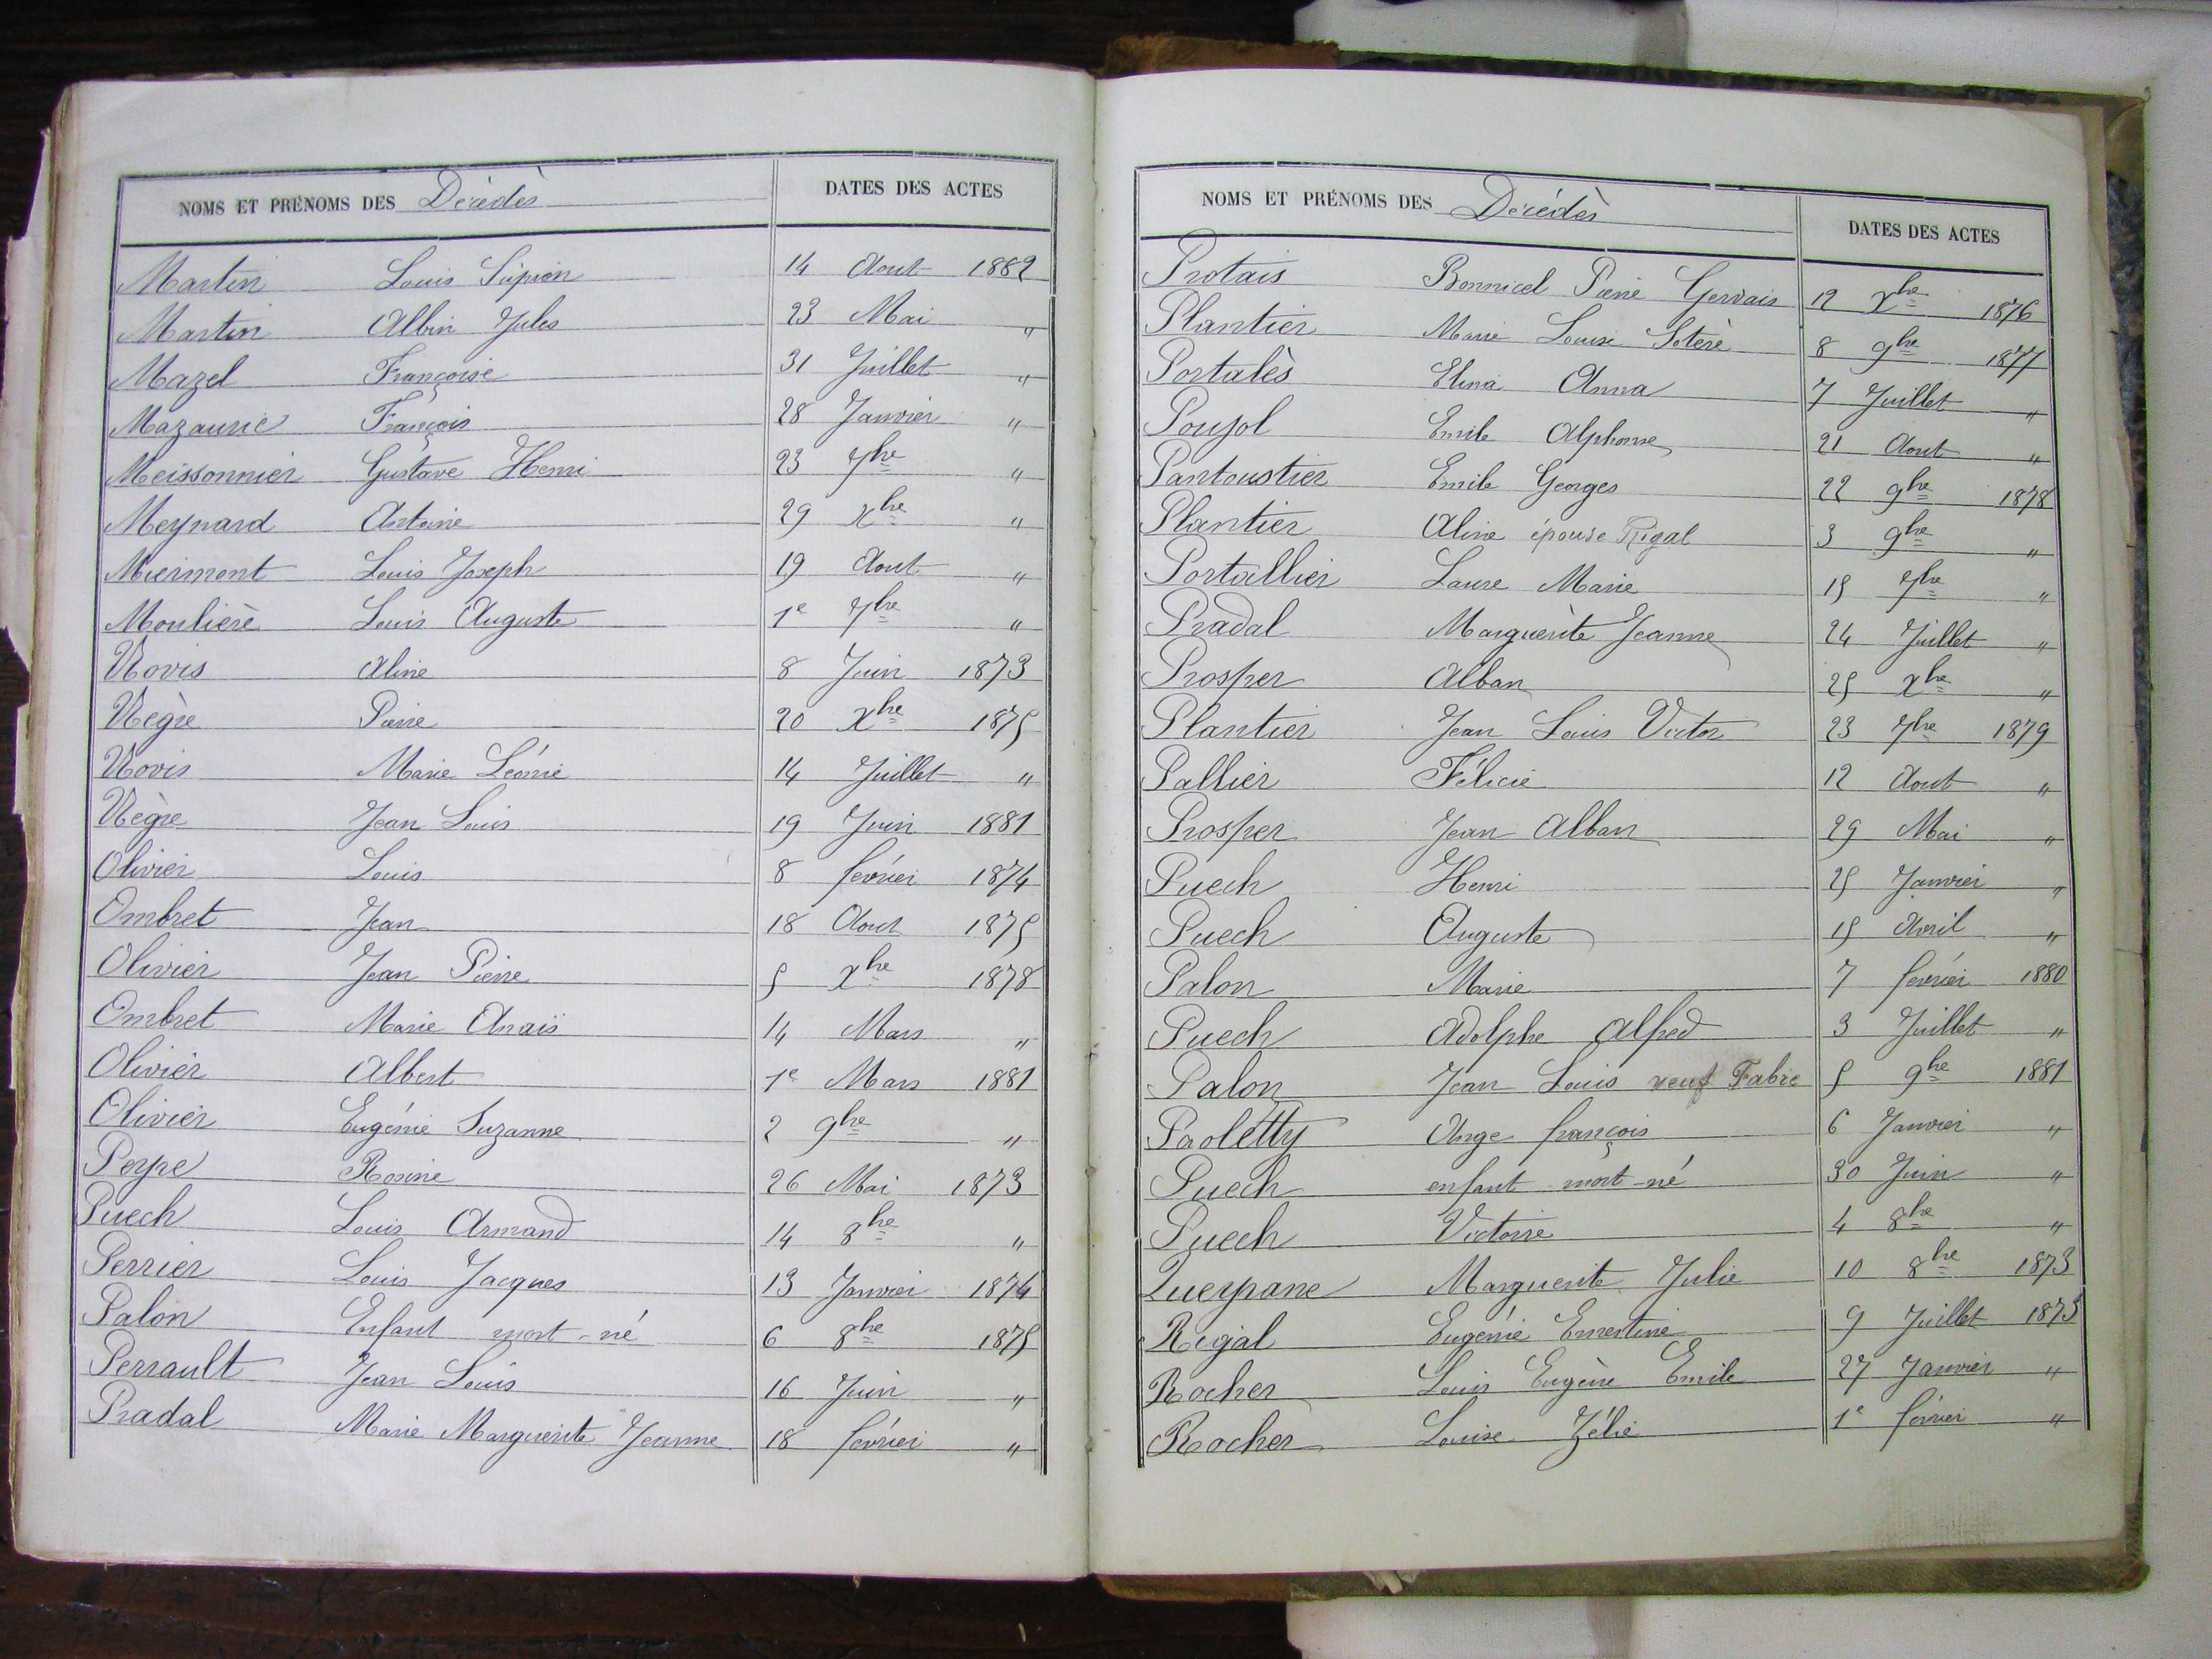 NOMS ET PRÉNOMS DES Décédés DATES DES ACTES
Martin Louis Scipion 14 Aout 1882
Martin Albin Jules 23 Mai "
Mazel Françoise 31 Juillet "
Mazauric François 28 Janvier "
Meissonnier Gustave Henri 23 7bre "
Meynard Antoine 29 Xbre "
Miermont Louis Joseph 19 Aout "
Moulière Louis Auguste 1e 7bre "
Novis Aline 8 Juin 1873
Nègre Pierre 20 Xbre 1875
Novis Marie Léonie 14 Juillet "
Nègre Jean Louis 19 Juin 1881
Olivier Louis 8 février 1874
Ombret Jean 18 Aout 1875
Olivier Jean Pierre 5 Xbre 1878
Ombret Marie Anaïs 14 Mars "
Olivier Albert 1e Mars 1881
Olivier Eugénie Suzanne 2 9bre "
Peyre Rosine 26 Mai 1873
Puech Louis Armand 14 8bre "
Perrier Louis Jacques 13 Janvier 1874
Palon Enfant mort-né 6 8bre 1875
Perrault Jean Louis 16 Juin "
Pradal Marie Marguerite Jeanne 18 février "
NOMS ET PRÉNOMS DES Décédés DATES DES ACTES
Protais Bonnicel Pierre Gervais 12 Xbre 1876
Plantier Marie Louise Sotère 8 9bre 1877
Portalès Elina Anna 7 Juillet "
Poujol Emile Alphonse 21 Aout "
Pantoustier Emile Georges 22 9bre 1878
Plantier Aline épouse Rigal 3 9bre "
Portallier Laure Marie 15 7bre "
Pradal Marguerite Jeanne 24 Juillet "
Prosper Alban 25 Xbre "
Plantier Jean Louis Victor 23 7bre 1879
Pallier Félicie 12 Aout "
Prosper Jean Alban 29 Mai "
Puech Henri 25 Janvier "
Puech Auguste 15 Avril "
Palon Marie 7 février 1880
Puech Adolphe Alfred 3 Juillet "
Palon Jean Louis veuf Fabre 5 9bre 1881
Paoletty Ange françois 6 Janvier "
Puech enfant mort-né 30 Juin "
Puech Victoire 4 8bre "
Queyrane Marguerite Julie 10 8bre 1873
Rigal Eugénie Ernestine 9 Juillet 1873
Rocher Louis Eugène Emile 27 Janvier "
Rocher Louise Zélie 1e février "